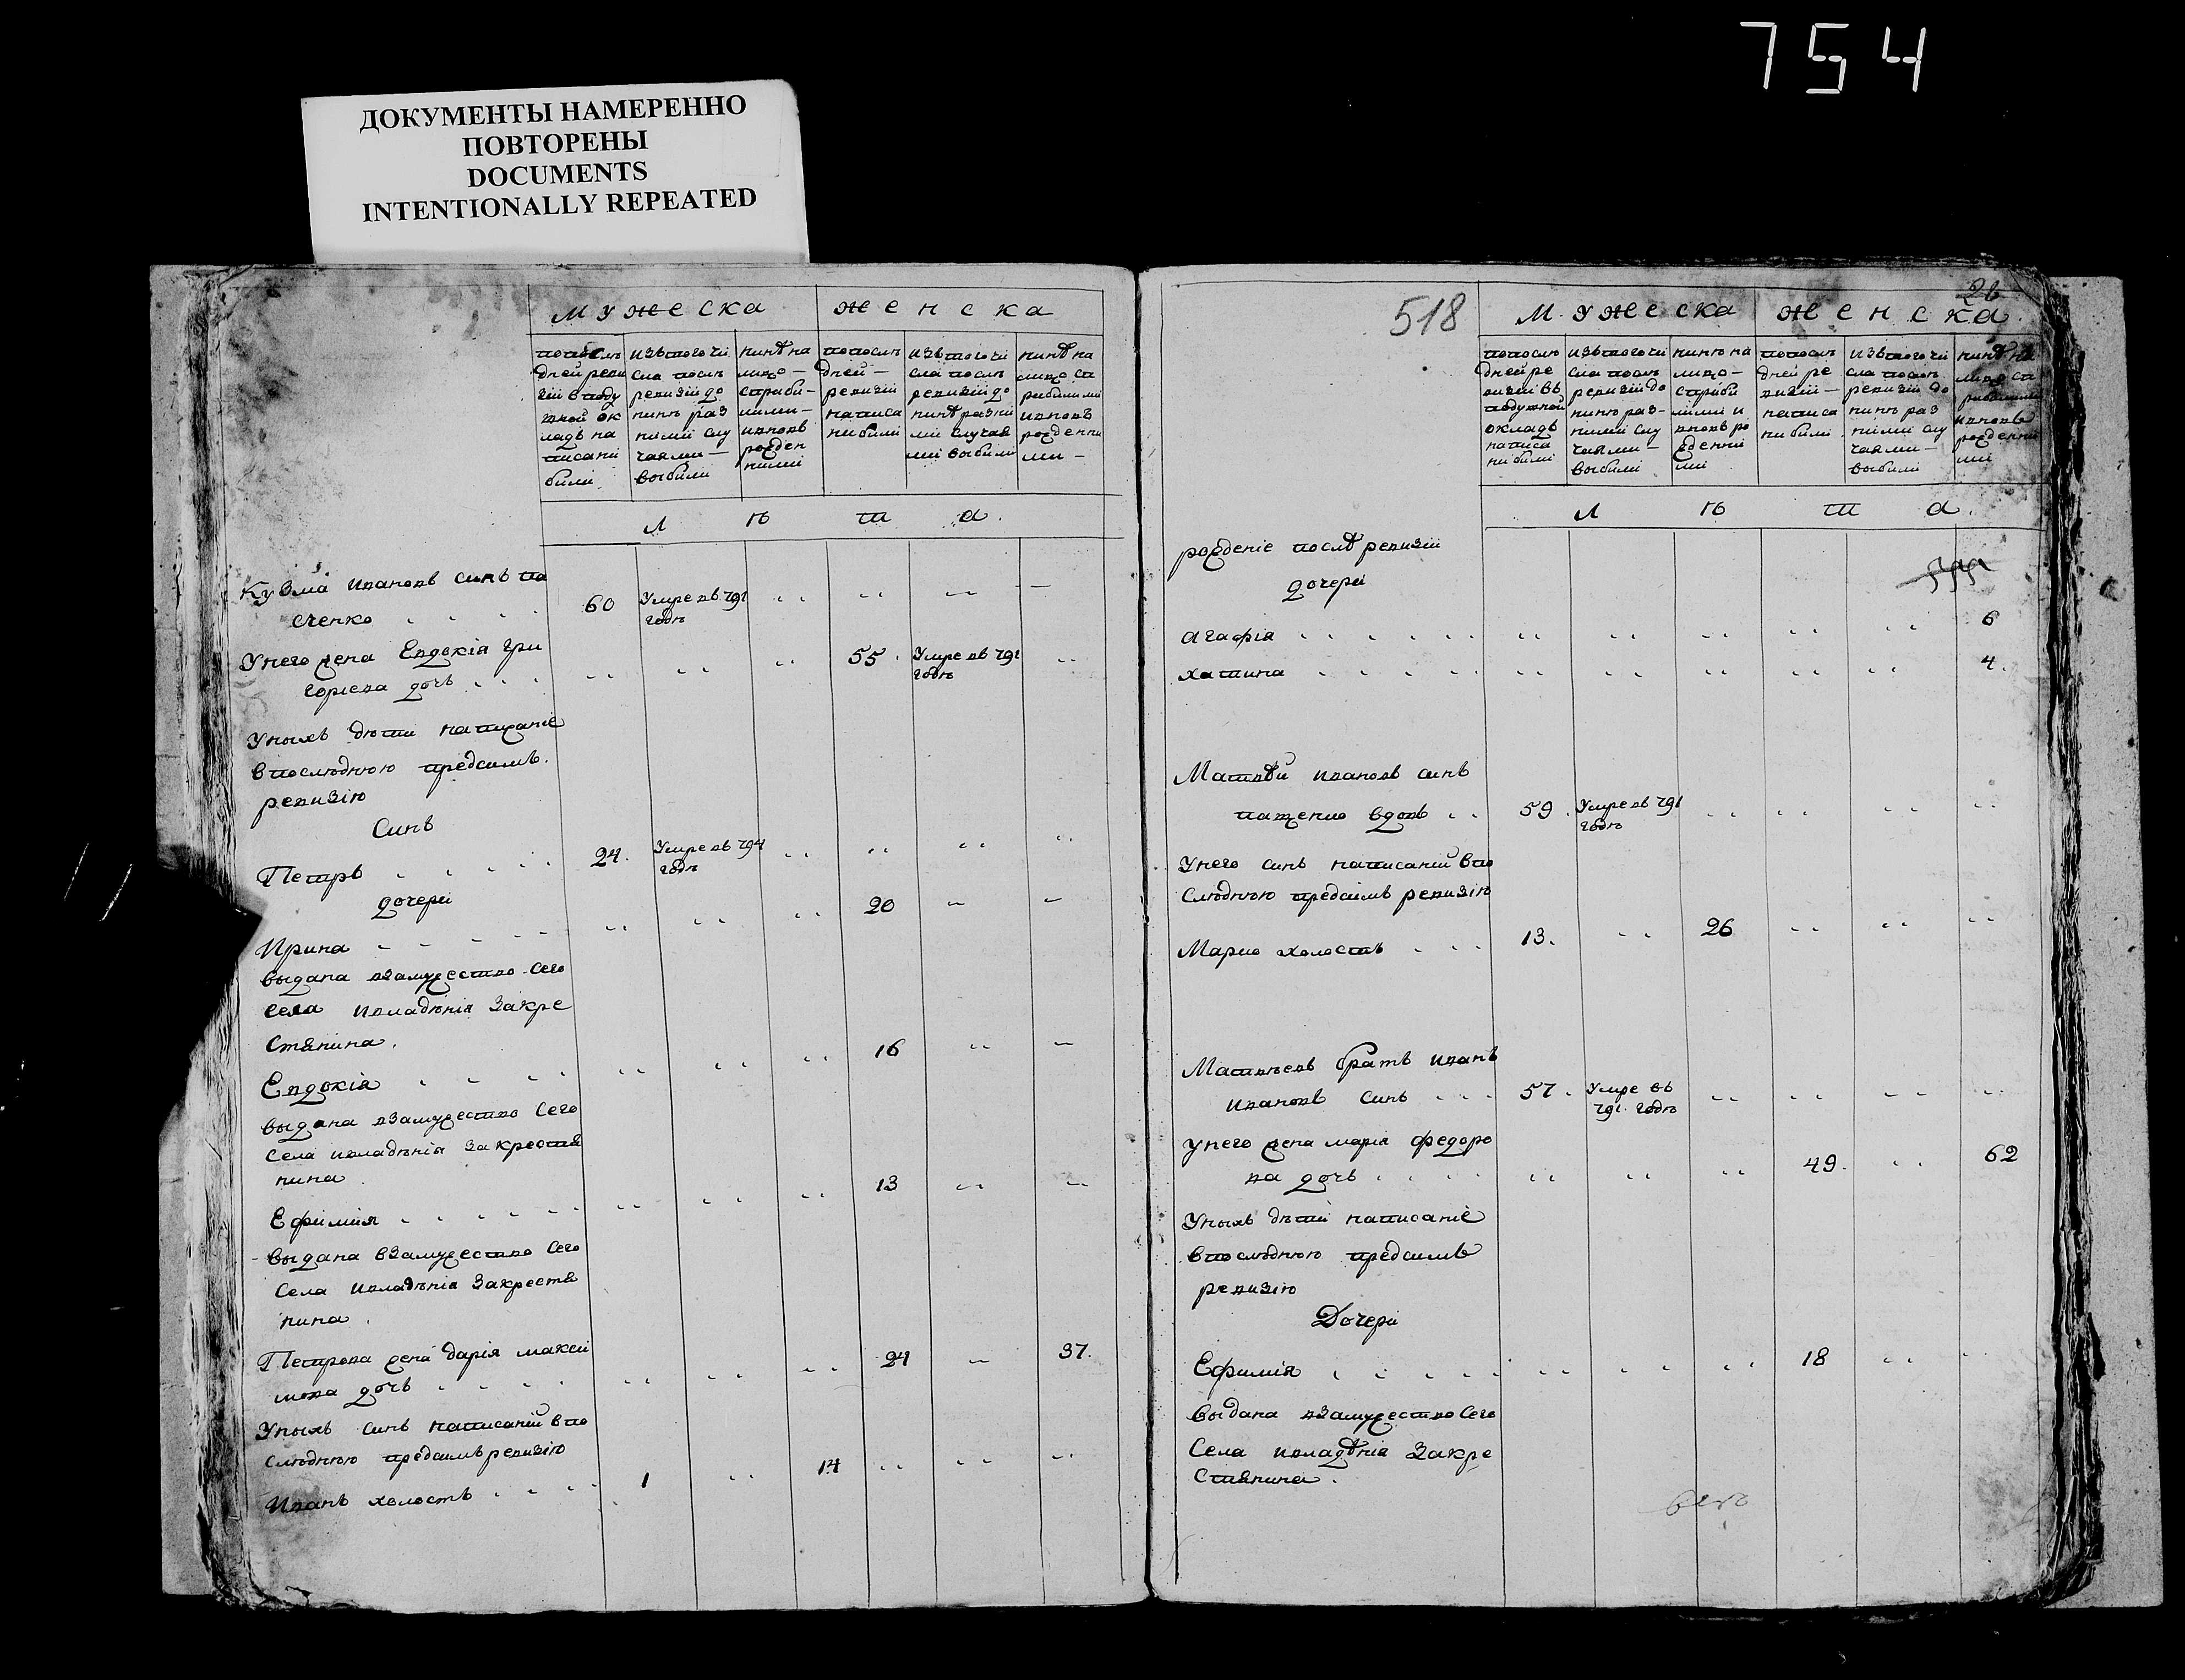 754
ДОКУМЕНТЫ НАМЕРЕННО
ПОВТОРЕНЫ
DOCUMENTS
INTENTIONALLY REPEATED
Мужеска женска
попослѣ
дней реви
зіи вподу
шной ок
ладъ на
писани
были
изътогочи
сла послѣ
ревизіи до
нинѣ раз
ними слу
чаями
выбили
нинѣ на
лицо
стриби
лими
ивновь
рожден
ними
попослѣ
дней
ревизіи
написа
ни били
изътогочи
сла послѣ
ревизіи до
нинѣ разни
ми случая
ми выбили
нинѣ на
лицо сп
рибилими
ивновь
рожденни
ми
лѣта
Кузма ивановъ синъ па
сченко 60 Умре въ 791
годѣ
Унего жена Евдокія гри
горіева дочь 55 Умре въ 791
годѣ
Унихъ дѣти написаніе
впослѣднюю предсимъ
ревизію
Синъ
Петръ 24 Умре въ 794
годѣ
дочери
Ирина 20
выдана взамужество сего
села ивладѣнія закре
стянина
Евдокія 16
выдана взамужество сего
села ивладѣнія закрестя
нина
Ефимия 13
выдана взамужество сего
села ивладѣнія закрестя
нина
Петрова жена дарія макси
мова дочь 24 37
Унихъ синъ написаній впо
слѣднюю предсимъ ревизію
Иванъ холостъ 1 14
518
26
Мужеска женска
попослѣ
дней ре
визіи въ
подушной
окладъ
написа
ни били
изътогочи
сла послѣ
ревизіи до
нинѣ раз
ними слу
чаями
выбили
нинѣ на
лицо
стриби
лими и
вновь ро
жденни
ми
попослѣ
дней ре
визіи
написа
ни били
изътогочи
сла послѣ
ревизіи до
нинѣ раз
ними слу
чаями
выбили
нинѣ на
лицо сп
рибилими
ивновь
рожденни
ми
лѣта
рожденіе послѣ ревизіи
дочери
Агафія 6
хатина 4
Матвѣй ивановъ синъ
пащенко вдовъ 59 Умре въ 791
годѣ
Унего синъ написаній впо
слѣднюю предсимъ ревизію
Марко холостъ 13 26
Матвѣевъ братъ иванъ
ивановъ синъ 57 Умре въ
791 годѣ
Унего жена марія федоро
ва дочь 49 62
Унихъ дѣти написаніе
впослѣднюю предсимъ
ревизію
Дочери
Ефимія 18
выдана взамужество сего
села ивладѣнія закре
стянина